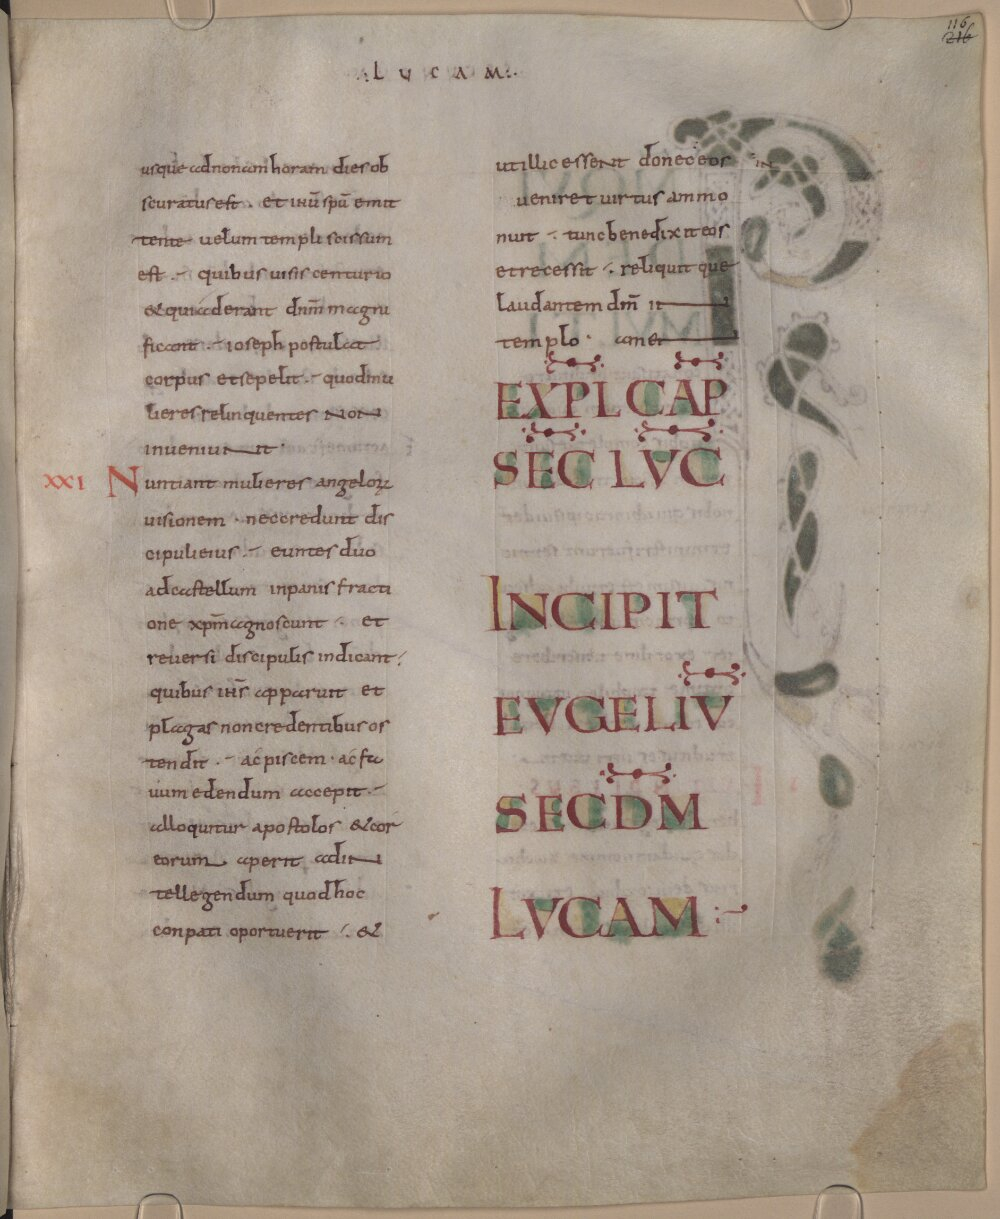 116
216
.: LUCAM :.
usque ad nonam horam dies ob
scuratus est . et ihū spū emit
tente uelum templi scissum
est . quibus uisis centurio
& qui aderant dnm̄ magni
ficant . ioseph postulat
corpus et sepelit . quod mu
lieres relinquentes NON
inueniunt .
XXI Nuntiant mulieres angeloꝝ
uisionem . nec credunt dis
cipuli eius . euntes duo
ad castellum in panis fracti
one xpm̄ agnoscunt . et
reuersi discipulis indicant .
quibus ihs̄ apparuit et
plagas non credentibus os
tendit . ac piscem . ac fa
uum edendum accepit .
alloquitur apostolos & cor
eorum aperit ad in
tellegendum quod hoc
con pati oportuerit . &
ut illic essent donec eos IN
ueniret uirtus ammo
nuit . tunc benedixit eos
et recessit . reliquit que
laudantem dm̄ in
templo . amen
EXPL CAP
SEC LUC
INCIPIT
EUGELIU
SECDM
LUCAM :~